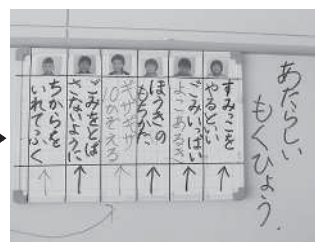 あたらしい
もくひょう
すみっこを
やるといい
ごみいっぱい
よこあるき
ほうきの
もちかた
ギザギザ
10かぞえる
ごみをとば
さないように
ちからを
いれてふく